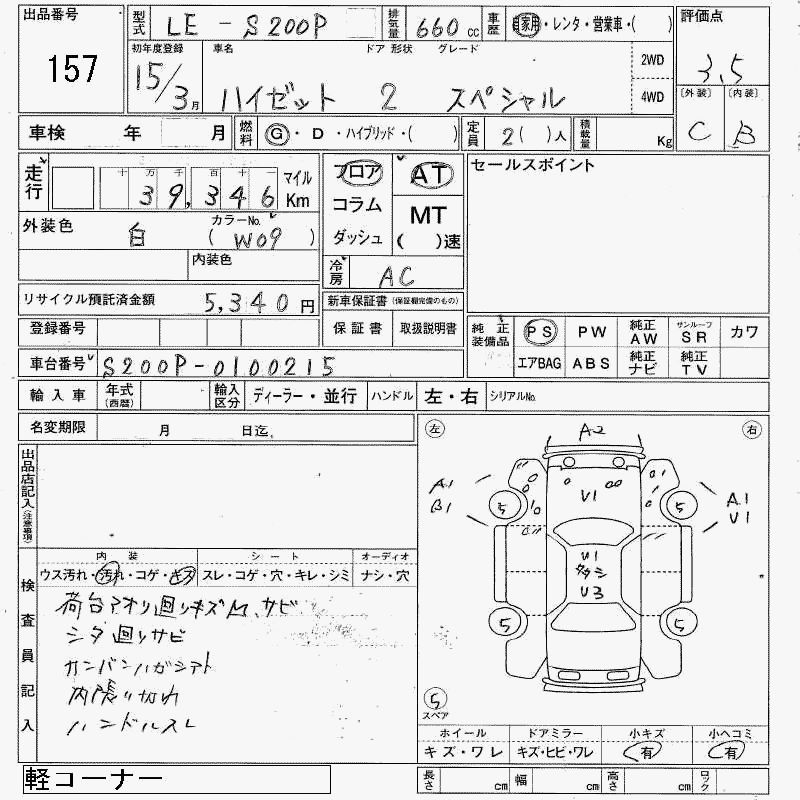 出品番号 157
型式 LE - S200P 排気量 660 cc 車歴 自家用・レンタ・営業車・( )
評価点 3.5
初年度登録 15/3月
車名 ハイゼット ドア 2 形状 グレード スペシャル
2WD
4WD
〔外装〕 C 〔内装〕 B
車検 年 月 燃料 G・D・ハイブリッド・( ) 定員 2( )人 積載量 Kg
走行 十万千百十一 39,346 マイル Km
フロア AT
コラム MT
ダッシュ ( )速
セールスポイント
外装色 白 カラーNo. (W09)
内装色
冷房 AC
リサイクル預託済金額 5,340円
新車保証書 (保証欄完備のもの)
保証書 取扱説明書
登録番号
車台番号 S200P-0100215
純正装備品 PS PW 純正AW サンルーフSR カワ
エアBAG ABS 純正ナビ 純正TV
輸入車 年式(西暦) 輸入区分 ディーラー・並行 ハンドル 左・右 シリアルNo.
名変期限 月 日迄
出品店記入(注意事項)
左 A2 右
A1
B1
U1
A1
U1
5 5
U1
タタミ
U3
5 5
5
スペア
検査員記入
内装 シート オーディオ
ウス汚れ・汚れ・コゲ・キズ スレ・コゲ・穴・キレ・シミ ナシ・穴
荷台アオリ廻りキズM、サビ
シタ廻リサビ
カンバンハガシアト
内張リ切れ
ハンドルスレ
ホイール ドアミラー 小キズ 小ヘコミ
キズ・ワレ キズ・ヒビ・ワレ (有) (有)
軽コーナー
長さ cm 幅 cm 高さ cm ロック